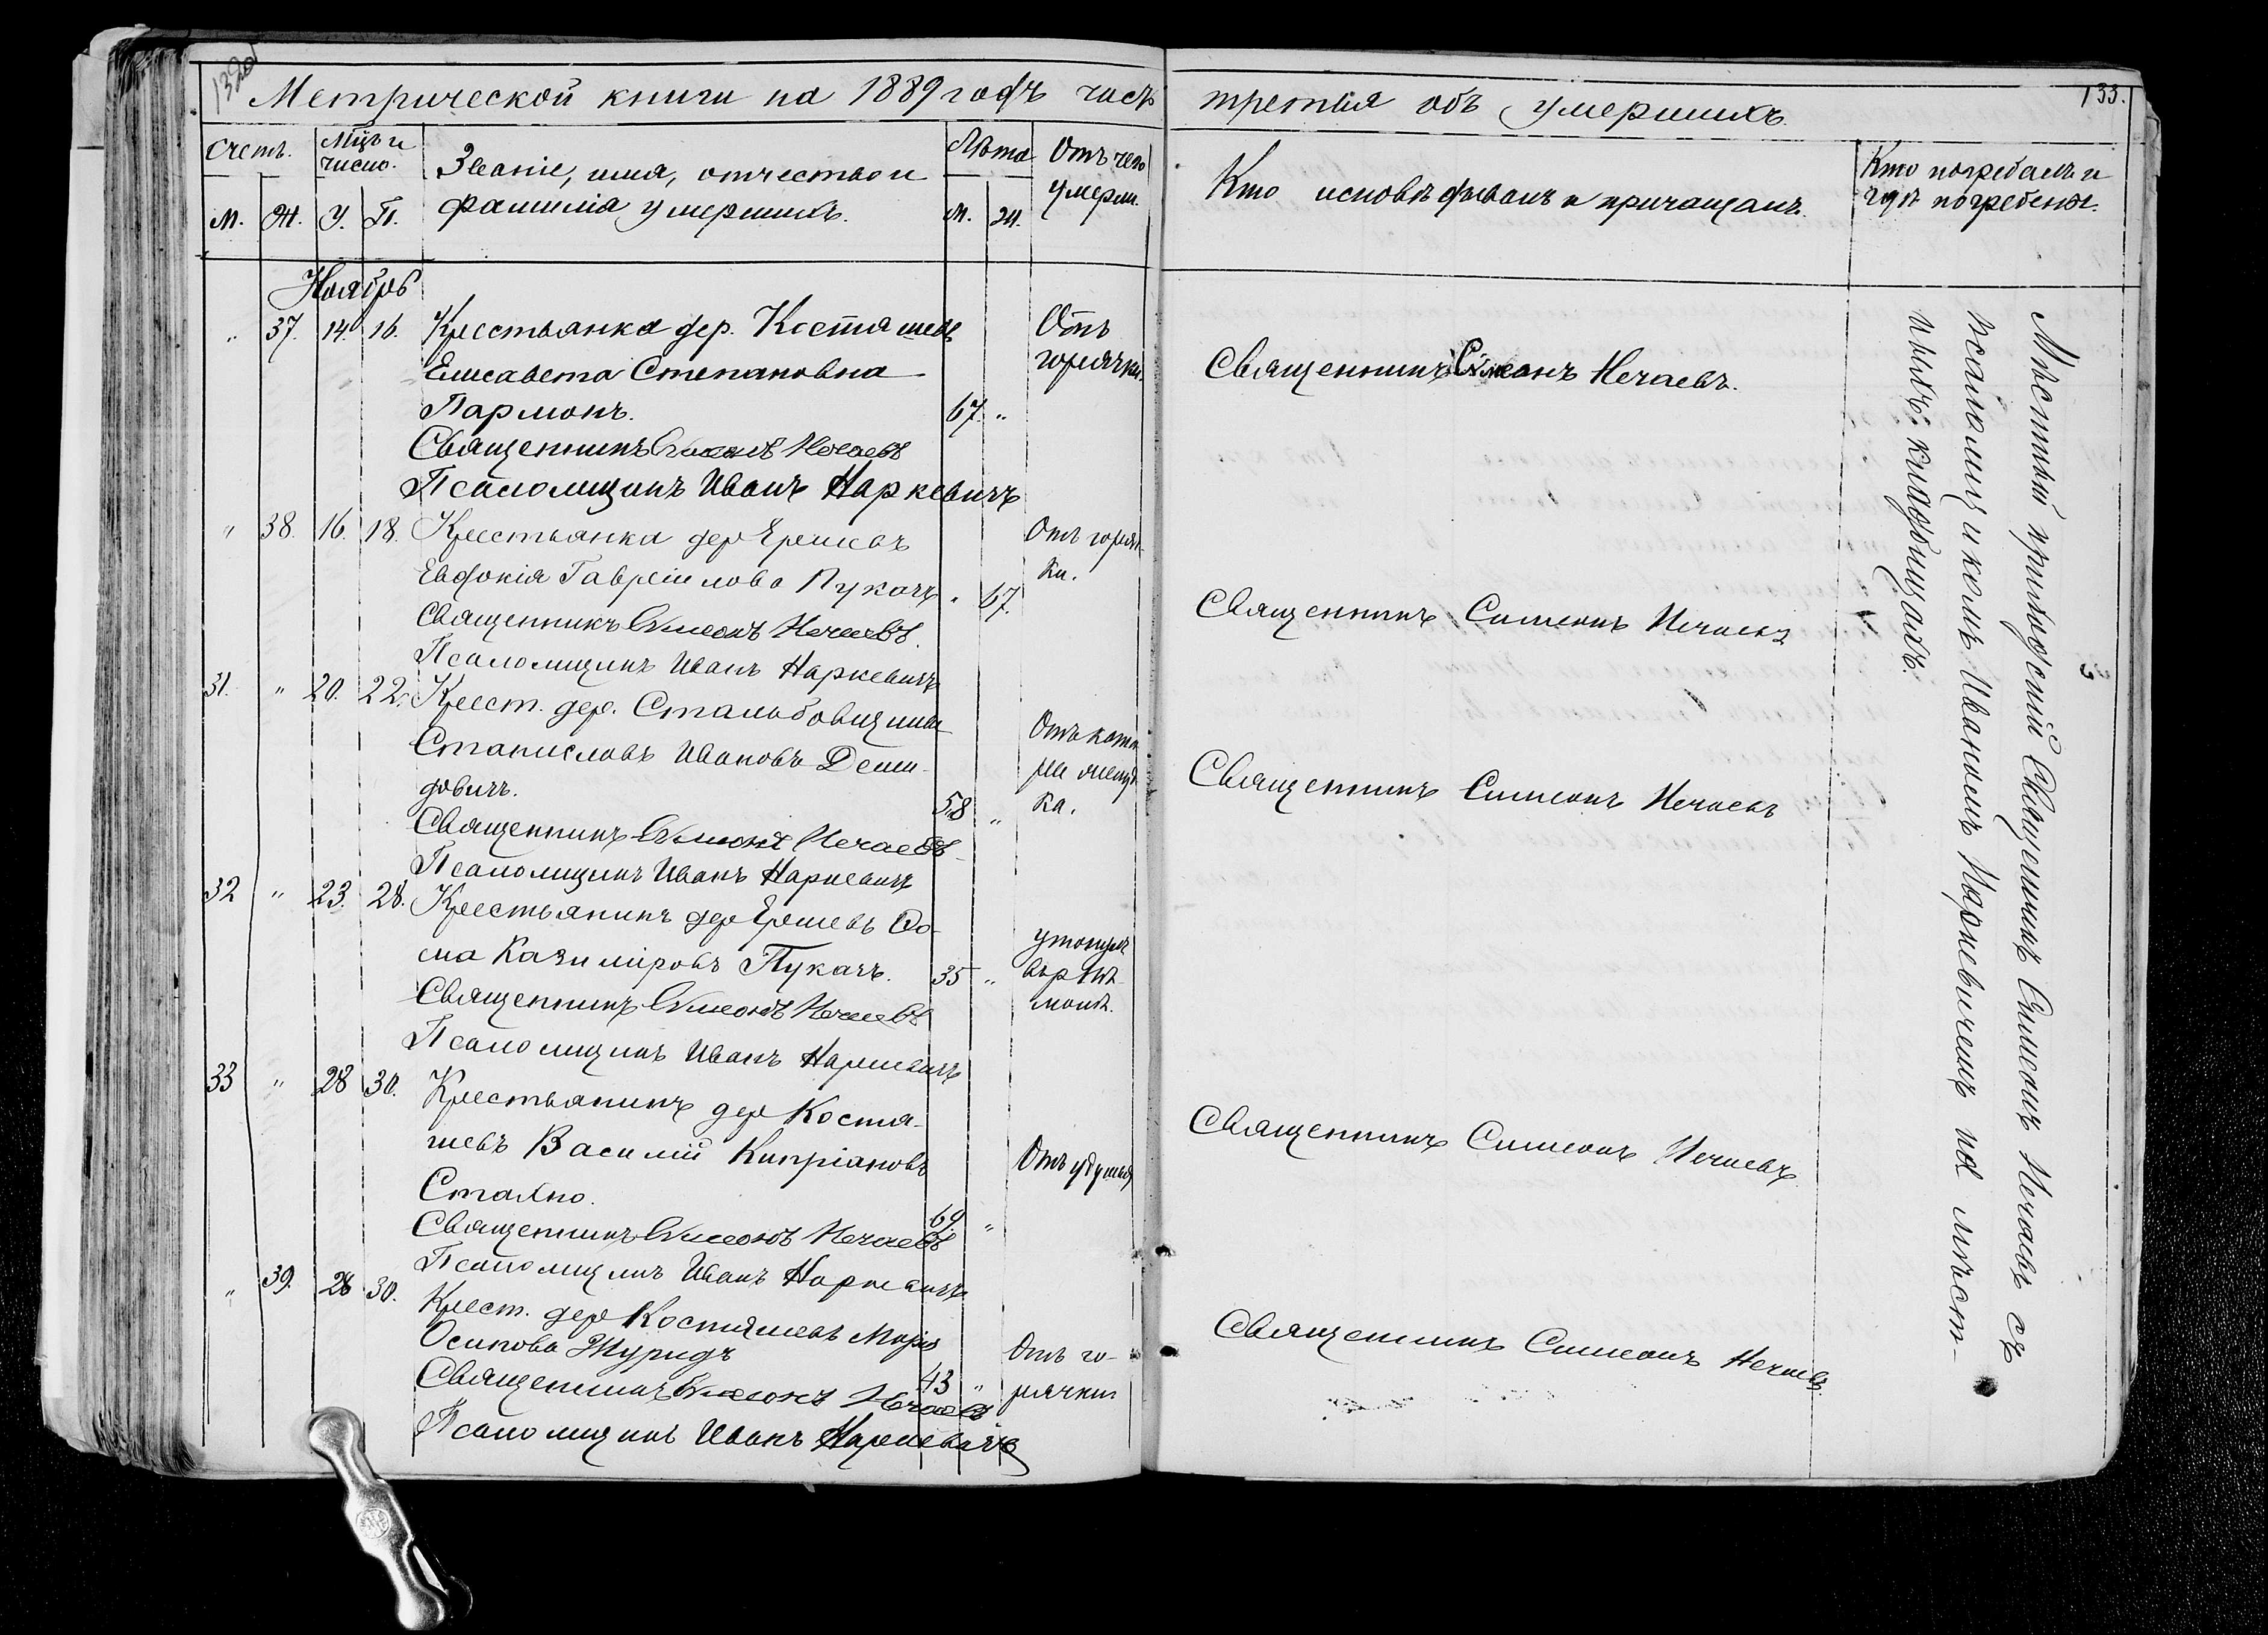 132об
Метрической книги на 1889 годъ часть
Счетъ. Мцъ и число. Званіе, имя, отчество и фамилія умершихъ. Лѣта Отъ чего умерли.
М. Ж. У. П. М. Ж.
Ноябрь
" 37. 14. 16. Крестьянка дер. Костяшевъ Отъ
Елисавета Степановна горячки.
Пармонъ. 67. "
Священникъ Симеонъ Нечаевъ
Псаломщикъ Иванъ Наркевичъ
" 38. 16. 18. Крестьянка дер Ершевъ Отъ горяч-
Евдокія Гавріилова Пукачъ " 67. ки.
Священникъ Симеонъ Нечаевъ.
Псаломщикъ Иванъ Наркевичъ
31. " 20. 22. Крест. дер. Стальбовщины
Станиславъ Ивановъ Деми-
довичъ. 58 " Отъ ката-
ра желуд-
ка.
Священникъ Симеонъ Нечаевъ
Псаломщикъ Иванъ Наркевичъ
32 " 23. 28. Крестьянинъ дер Ершевъ Ѳо-
ма Казиміровъ Пукачъ. 35 " утонулъ
въ рѣкѣ
Священникъ Симеонъ Нечаевъ
Псаломщикъ Иванъ Наркевичъ
33 " 28 30. Крестьянинъ дер Костя-
шевъ Василій Кипріановъ Отъ удушья
69. "
Священникъ Симеонъ Нечаевъ
Псаломщикъ Иванъ Наркевичъ
" 39. 28 30. Крест. дер Костяшевъ Марія
Осипова Журидъ Отъ го-
43 " рячки
Священникъ Симеонъ Нечаевъ
Псаломщикъ Иванъ Наркевичъ
133.
третья объ умершихъ.
Кто исповѣдывалъ и причащалъ. Кто погребалъ и
гдѣ погребены.
Священникъ Симеонъ Нечаевъ.
Священникъ Симеонъ Нечаевъ
Священникъ Симеонъ Нечаевъ
Священникъ Симеонъ Нечаевъ
Священникъ Симеонъ Нечаевъ
Мѣстный приходскій Священникъ Симеонъ Нечаевъ съ
псаломщикомъ Иваномъ Наркевичемъ на мѣст-
ныхъ кладбищахъ.